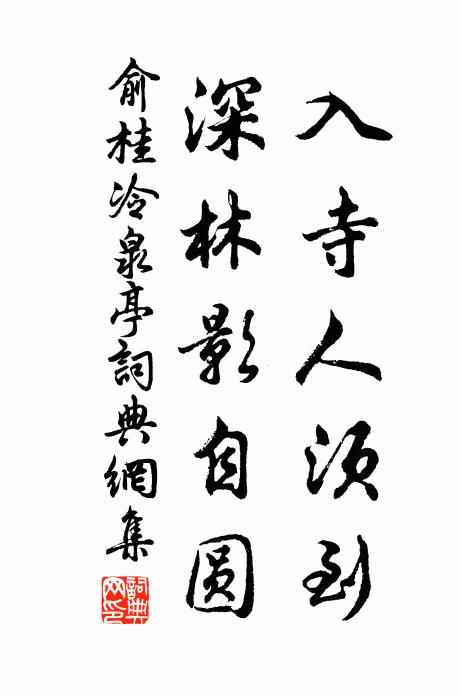 入寺人須到
深林影自圓
俞桂冷泉亭詞典網集
詞典網印